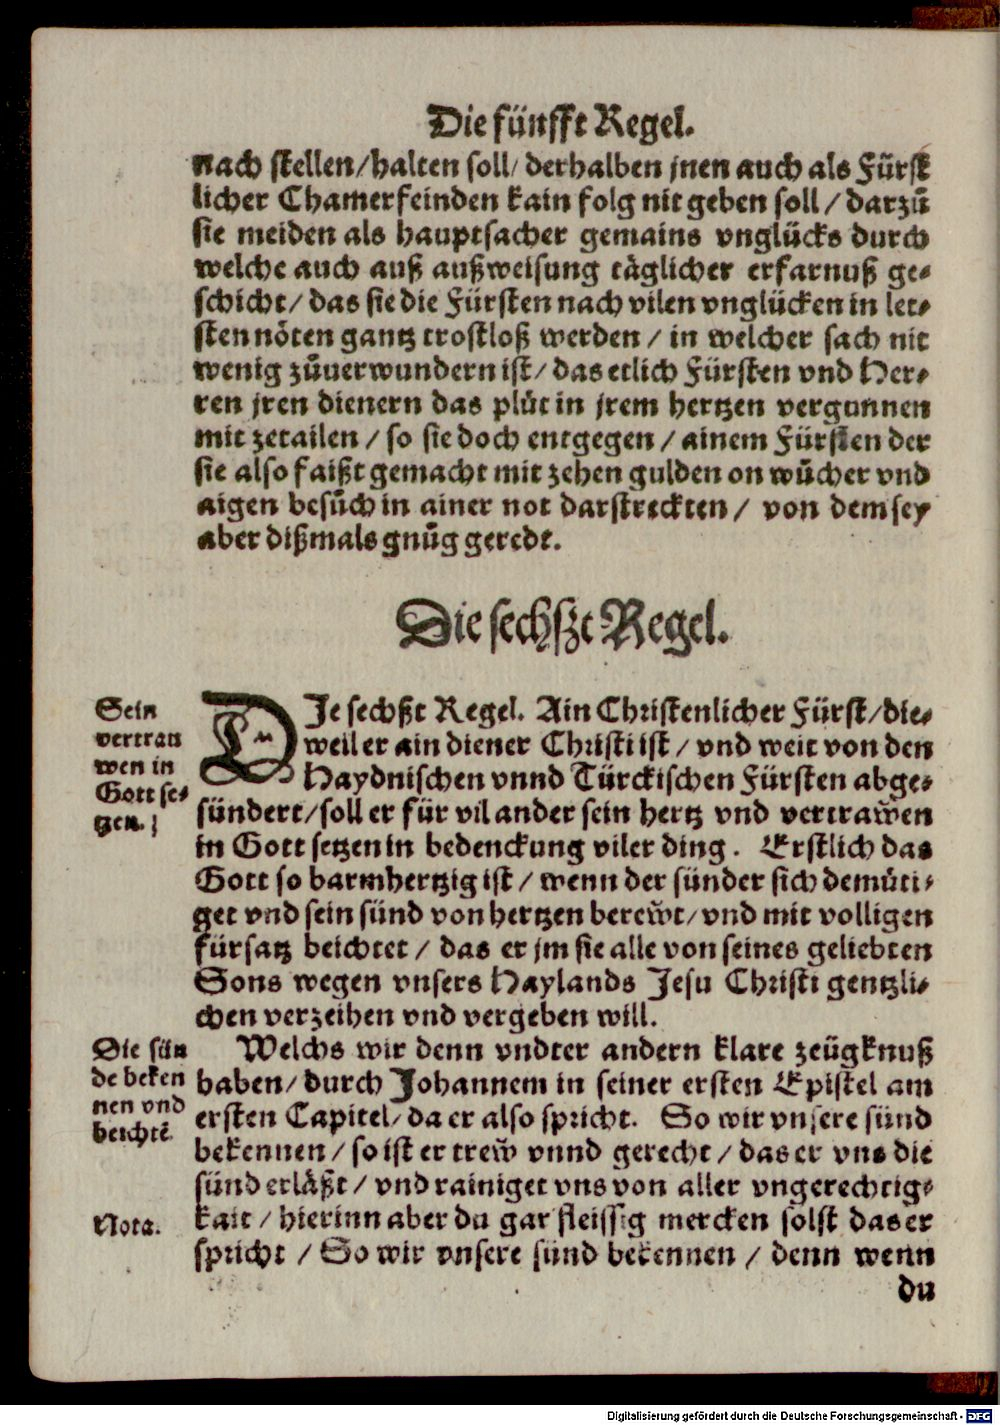 Die fünfft Regel.
nach stellen/halten soll/ derhalben jnen auch als Fürst
licher Chamerfeinden kain folg nit geben soll / darzuͦ
sie meiden als hauptsacher gemains vnglücks durch
welche auch auß außweisung täglicher erfarnuß ge-
schicht/ das sie die Fürsten nach vilen vnglücken in let-
sten nöten gantz trostloß werden / in welcher sach nit
wenig zuͦuerwundern ist/ das etlich Fürsten vnd Her-
ren jren dienern das pluͦt in jrem hertzen vergunnen
mit zetailen / so sie doch entgegen / ainem Fürsten der
sie also faißt gemacht mit zehen gulden on wuͦcher vnd
aigen besuͦch in ainer not darstreckten / von dem sey
aber dißmals gnuͦg geredt.
Die sechßt Regel.
DIe sechßt Regel. Ain Christenlicher Fürst/die-
weil er ain diener Christi ist / vnd weit von den
Haydnischen vnnd Türckischen Fürsten abge-
sündert/soll er für vil ander sein hertz vnd vertrawͦen
in Gott setzen in bedenckung viler ding. Erstlich das
Gott so barmhertzig ist / wenn der sünder sich demuͤti-
get vnd sein sünd von hertzen berewͦt/ vnd mit volligen
fürsatz beichtet / das er jm sie alle von seines geliebten
Sons wegen vnsers Haylands Jesu Christi gentzli-
chen verzeihen vnd vergeben will.
Welchs wir denn vndter andern klare zeügknuß
haben/ durch Johannem in seiner ersten Epistel am
ersten Capitel/ da er also spricht. So wir vnsere sünd
bekennen / so ist er trewͦ vnnd gerecht / das er vns die
sünd erläßt / vnd rainiget vns von aller vngerechtig-
kait / hierinn aber du gar fleissig mercken solst das er
spricht / So wir vnsere sünd bekennen / denn wenn
du
Sein
vertrau
wen in
Gott se-
tzen.
Die sün
de beken
nen vnd
beichtē
Nota.
Digitalisierung gefördert durch die Deutsche Forschungsgemeinschaft - DFG